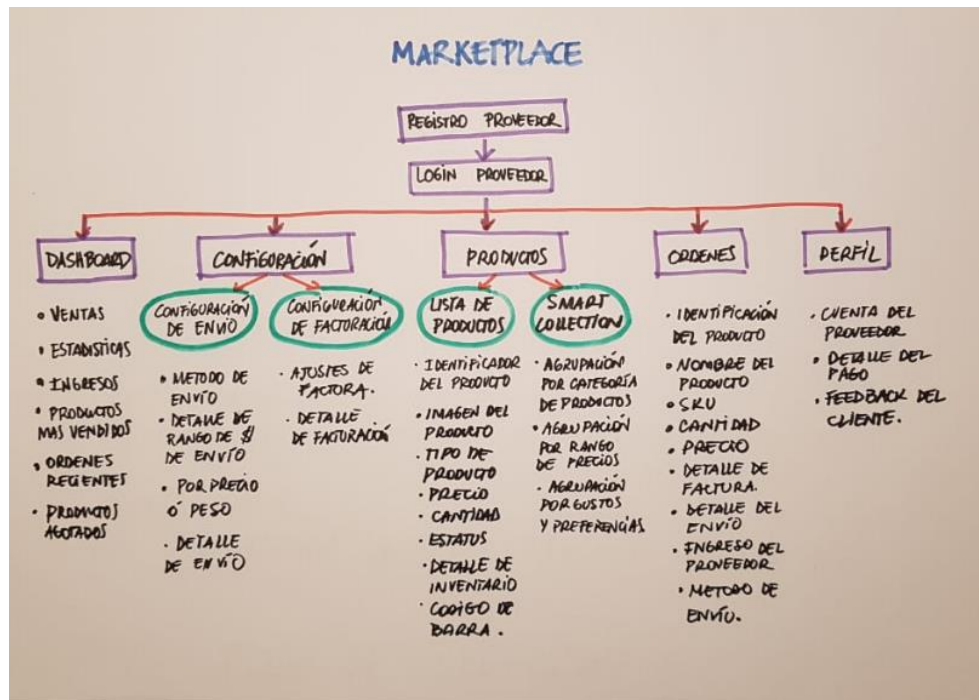 MARKETPLACE
REGISTRO PROVEEDOR
LOGIN PROVEEDOR
DASHBOARD
• VENTAS
• ESTADISTICAS
• INGRESOS
• PRODUCTOS
MAS VENDIDOS
• ORDENES
RECIENTES
• PRODUCTOS
AGOTADOS
CONFIGURACIÓN
CONFIGURACIÓN
DE ENVIO
• METODO DE
ENVÍO
• DETALLE DE
RANGO DE $
DE ENVÍO
• POR PRECIO
Ó PESO
• DETALLE
DE ENVÍO
CONFIGURACIÓN
DE FACTURACIÓN
• AJUSTES DE
FACTORA.
• DETALLE
DE FACTURACIÓN
PRODUCTOS
LISTA DE
PRODUCTOS
• IDENTIFICADOR
DEL PRODUCTO
• IMAGEN DEL
PRODUCTO
• TIPO DE
PRODUCTO
• PRECIO
• CANTIDAD
• ESTATUS
• DETALLE DE
INVENTARIO
• CODIGO DE
BARRA.
SMART
COLLECTION
• AGRUPACIÓN
POR CATEGORÍA
DE PRODUCTOS
• AGRUPACIÓN
POR RANGO
DE PRECIOS
• AGRUPACIÓN
POR GUSTOS
Y PREFERENCIAS
ORDENES
• IDENTIFICACIÓN
DEL PRODUCTO
• NOMBRE DEL
PRODUCTO
• SKU
• CANTIDAD
• PRECIO
• DETALLE DE
FACTURA.
• DETALLE DEL
ENVÍO
• INGRESO DEL
PROVEEDOR
• METODO DE
ENVÍO.
PERFIL
• CUENTA DEL
PROVEEDOR
• DETALLE DEL
PAGO
• FEEDBACK DEL
CLIENTE.